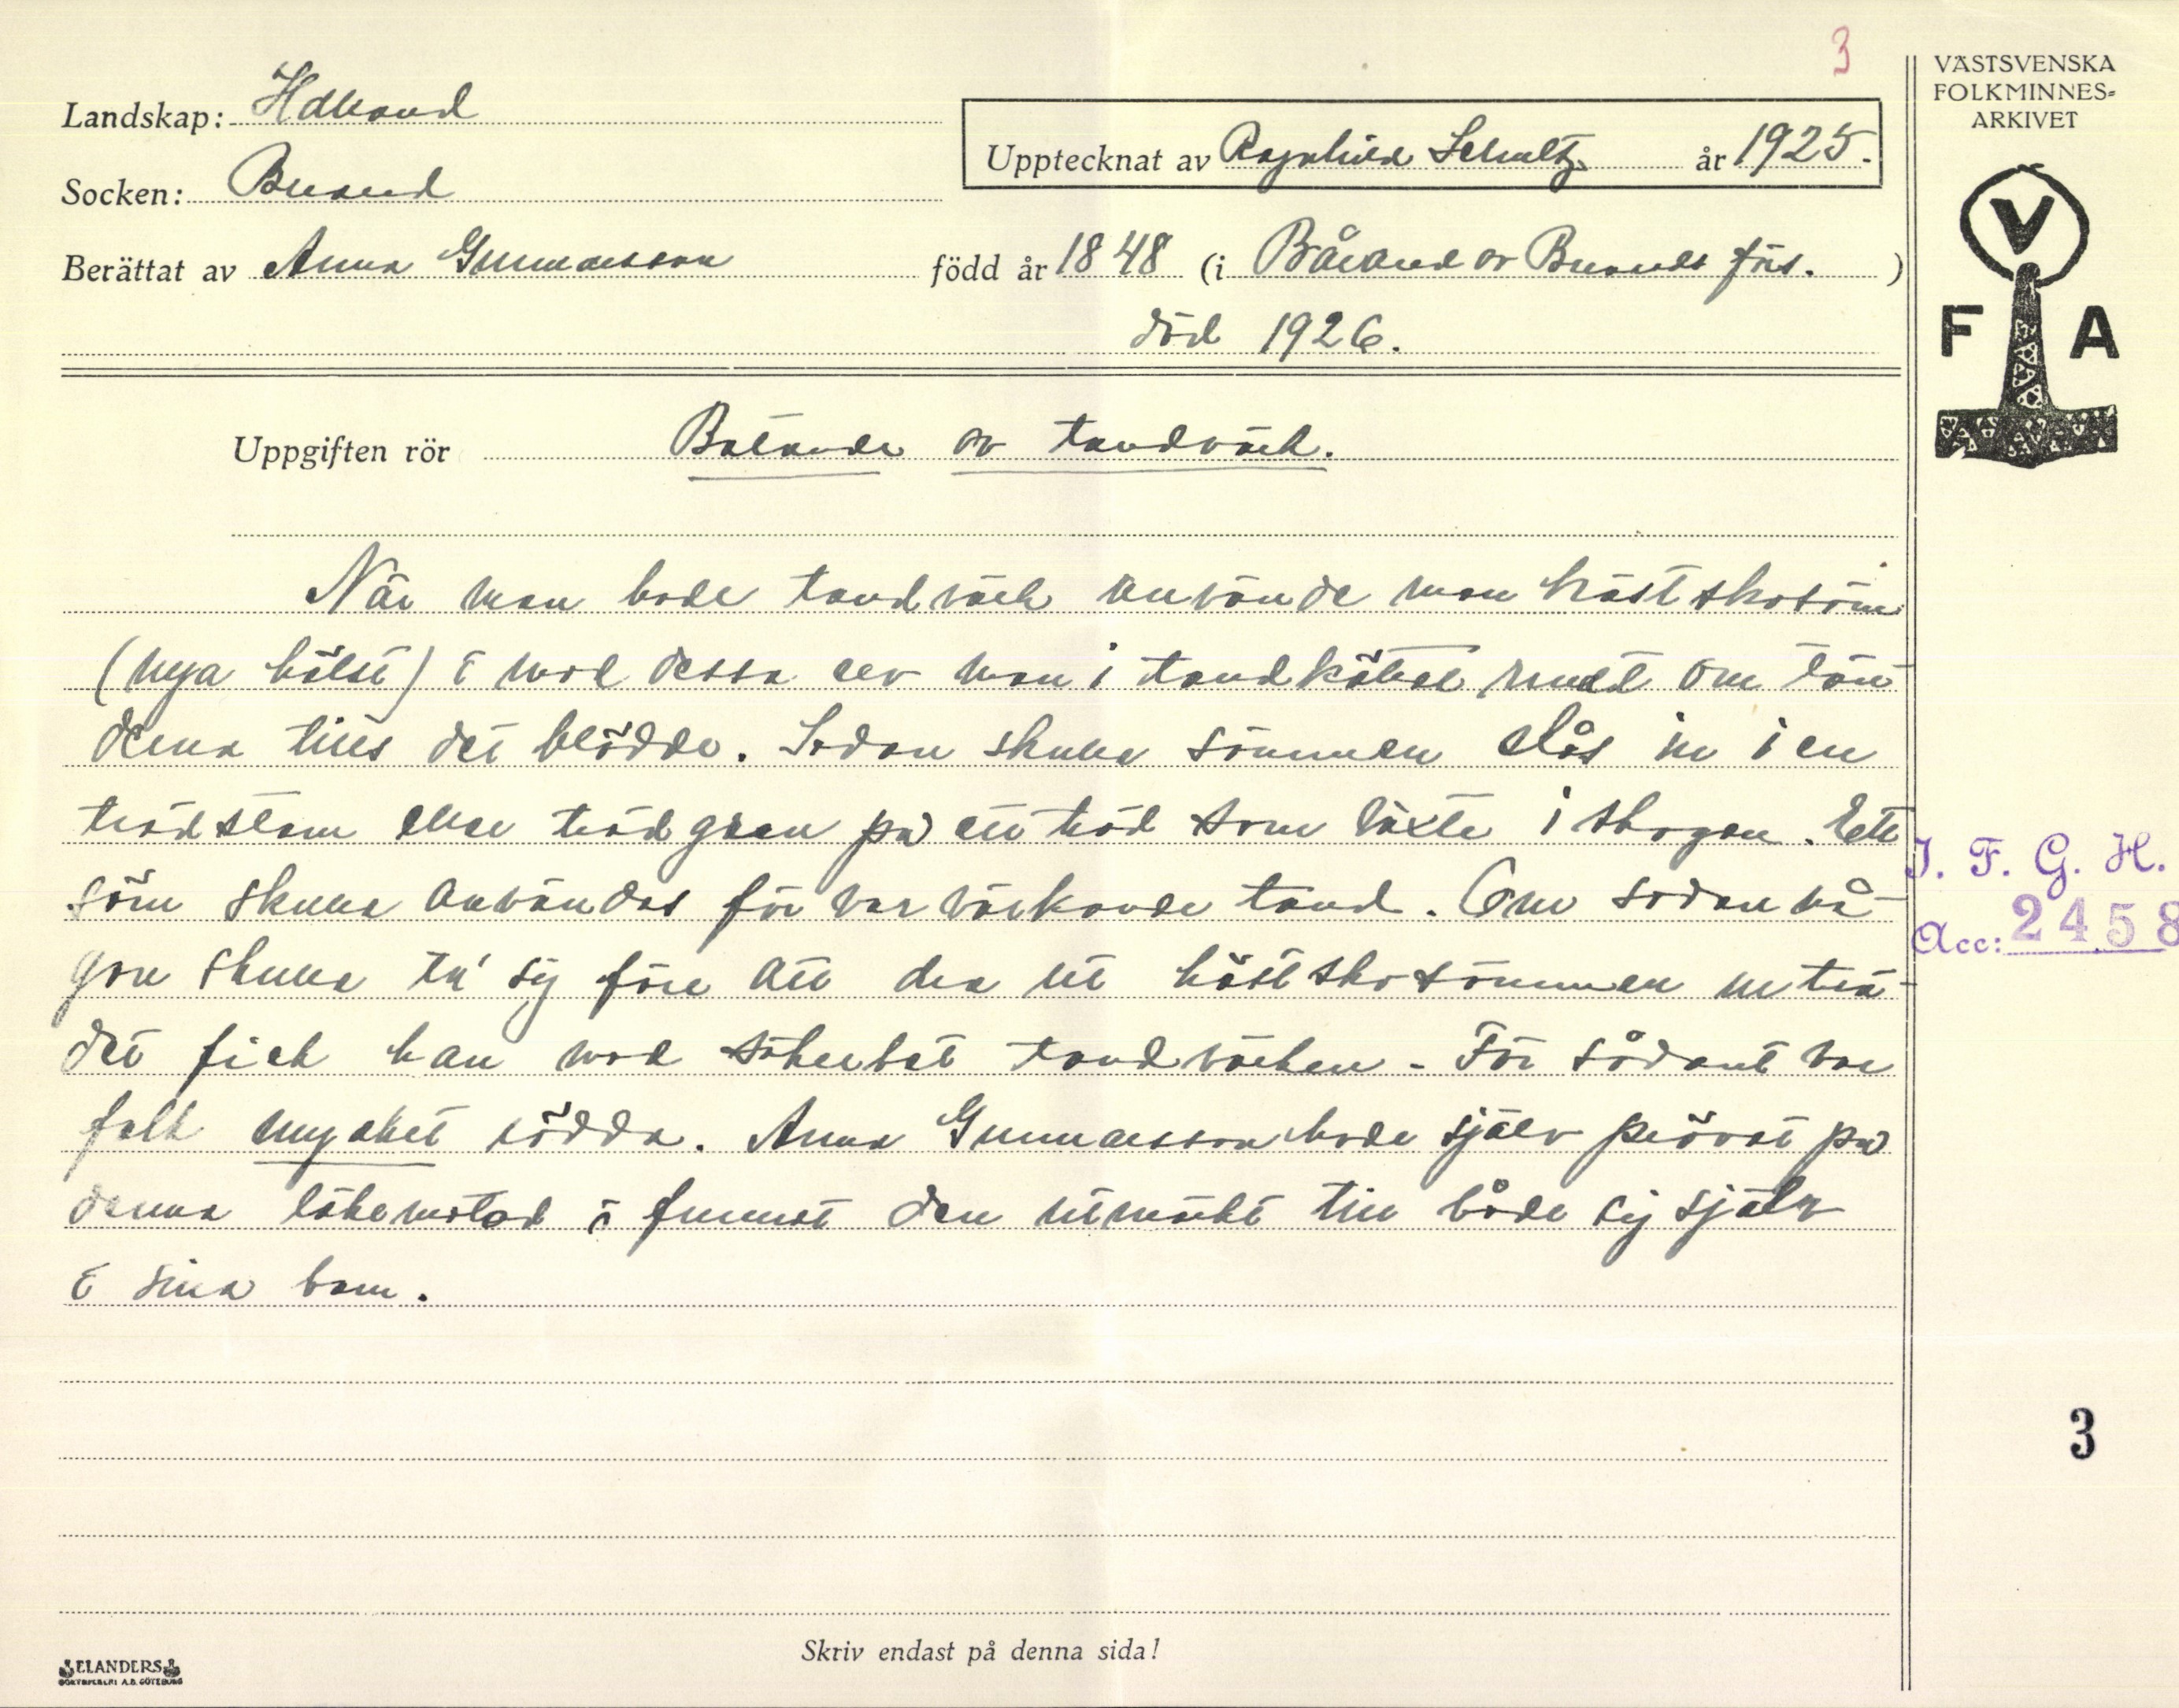 3
VÄSTSVENSKA
FOLKMINNES-
ARKIVET
Landskap: Halland
Upptecknat av Ragnhild Schultz år 1925.
Socken: Breared
Berättat av Anna Gunnarsson född år 1848 (i av Breareds förs. )
död 1926.
V
F A
Uppgiften rör Botande av tandvärk.
När man hade tandvärk använde man hästskosöm
(nya hälst) å med dessa rev man i tandköttet rundt om tän-
derna tills det blödde. Sedan skulle sömmen slås in i en
trädstam eller trädgren på ett träd som växte i skogen. Ett
söm skulle användas för var värkande tand. Om sedan nå-
gon skulle ta' sig före att dra ut hästskosömmen ur trä-
det fick han med säkerhet tandvärken. För sådant var
folk mycket rädda. Anna Gunnarsson hade själv prövat på
denna läkemetod å funnit den utmärkt till både sig själv
å sina barn.
I. F. G. H.
Acc: 2458
3
Skriv endast på denna sida!
ELANDERS
BOKTRYCKERI A.B. GÖTEBORG